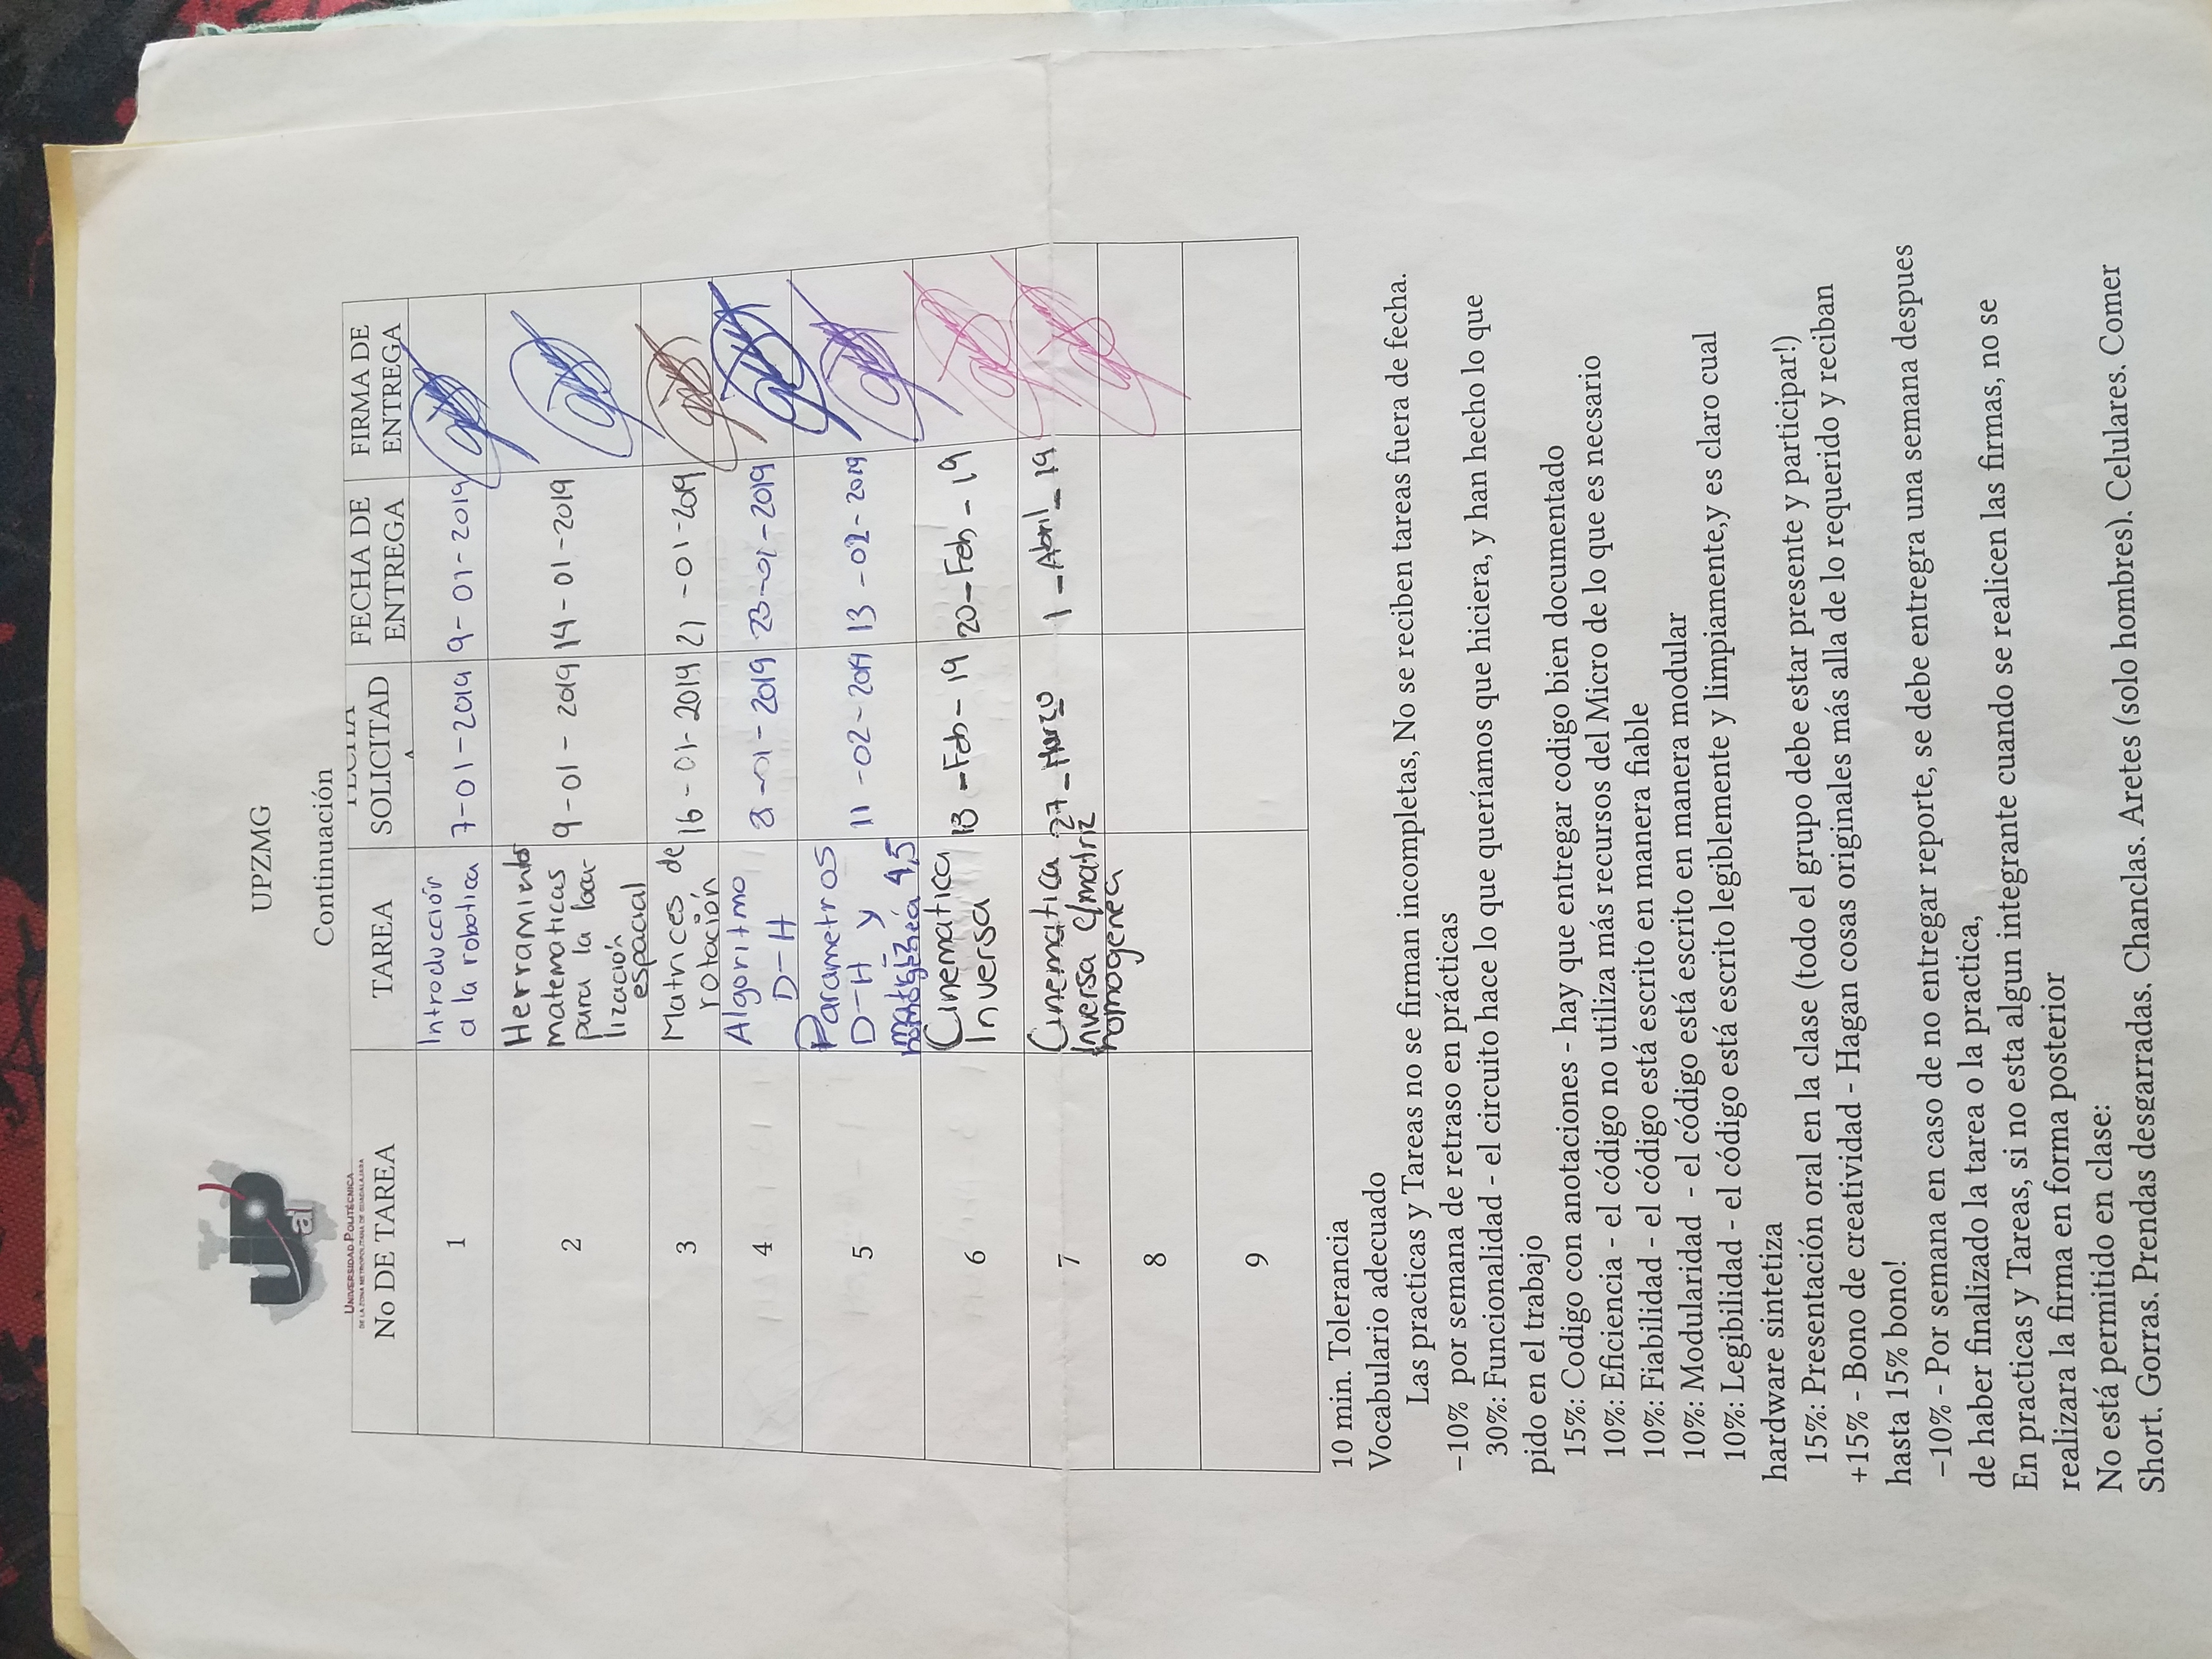 UP
al
UNIVERSIDAD POLITÉCNICA
DE LA ZONA METROPOLITANA DE GUADALAJARA
UPZMG
Continuación
No DE TAREA
TAREA
FECHA
SOLICITAD
A
FECHA DE
ENTREGA
FIRMA DE
ENTREGA
1
Introducción
a la robotica
7-01-2019
9-01-2019
2
Herramientas
matematicas
para la loca-
lización
espacial
9-01-2019
14-01-2019
3
Matrices de
rotación
16-01-2019
21-01-2019
4
Algoritmo
D-H
-01-2019
23-01-2019
5
Parametros
D-H y
matriz 4,5
homogenea
11-02-2019
13-02-2019
6
Cinematica
Inversa
13-Feb-19
20-Feb-19
7
Cinematica
Inversa c/matriz
homogenea
27-Marzo
1-Abril-19
8
9
10 min. Tolerancia
Vocabulario adecuado
Las practicas y Tareas no se firman incompletas, No se reciben tareas fuera de fecha.
−10% por semana de retraso en prácticas
30%: Funcionalidad - el circuito hace lo que queríamos que hiciera, y han hecho lo que
pido en el trabajo
15%: Codigo con anotaciones - hay que entregar codigo bien documentado
10%: Eficiencia - el código no utiliza más recursos del Micro de lo que es necsario
10%: Fiabilidad - el código está escrito en manera fiable
10%: Modularidad - el código está escrito en manera modular
10%: Legibilidad - el código está escrito legiblemente y limpiamente,y es claro cual
hardware sintetiza
15%: Presentación oral en la clase (todo el grupo debe estar presente y participar!)
+15% - Bono de creatividad - Hagan cosas originales más alla de lo requerido y reciban
hasta 15% bono!
−10% - Por semana en caso de no entregar reporte, se debe entregra una semana despues
de haber finalizado la tarea o la practica,
En practicas y Tareas, si no esta algun integrante cuando se realicen las firmas, no se
realizara la firma en forma posterior
No está permitido en clase:
Short, Gorras, Prendas desgarradas, Chanclas, Aretes (solo hombres), Celulares, Comer